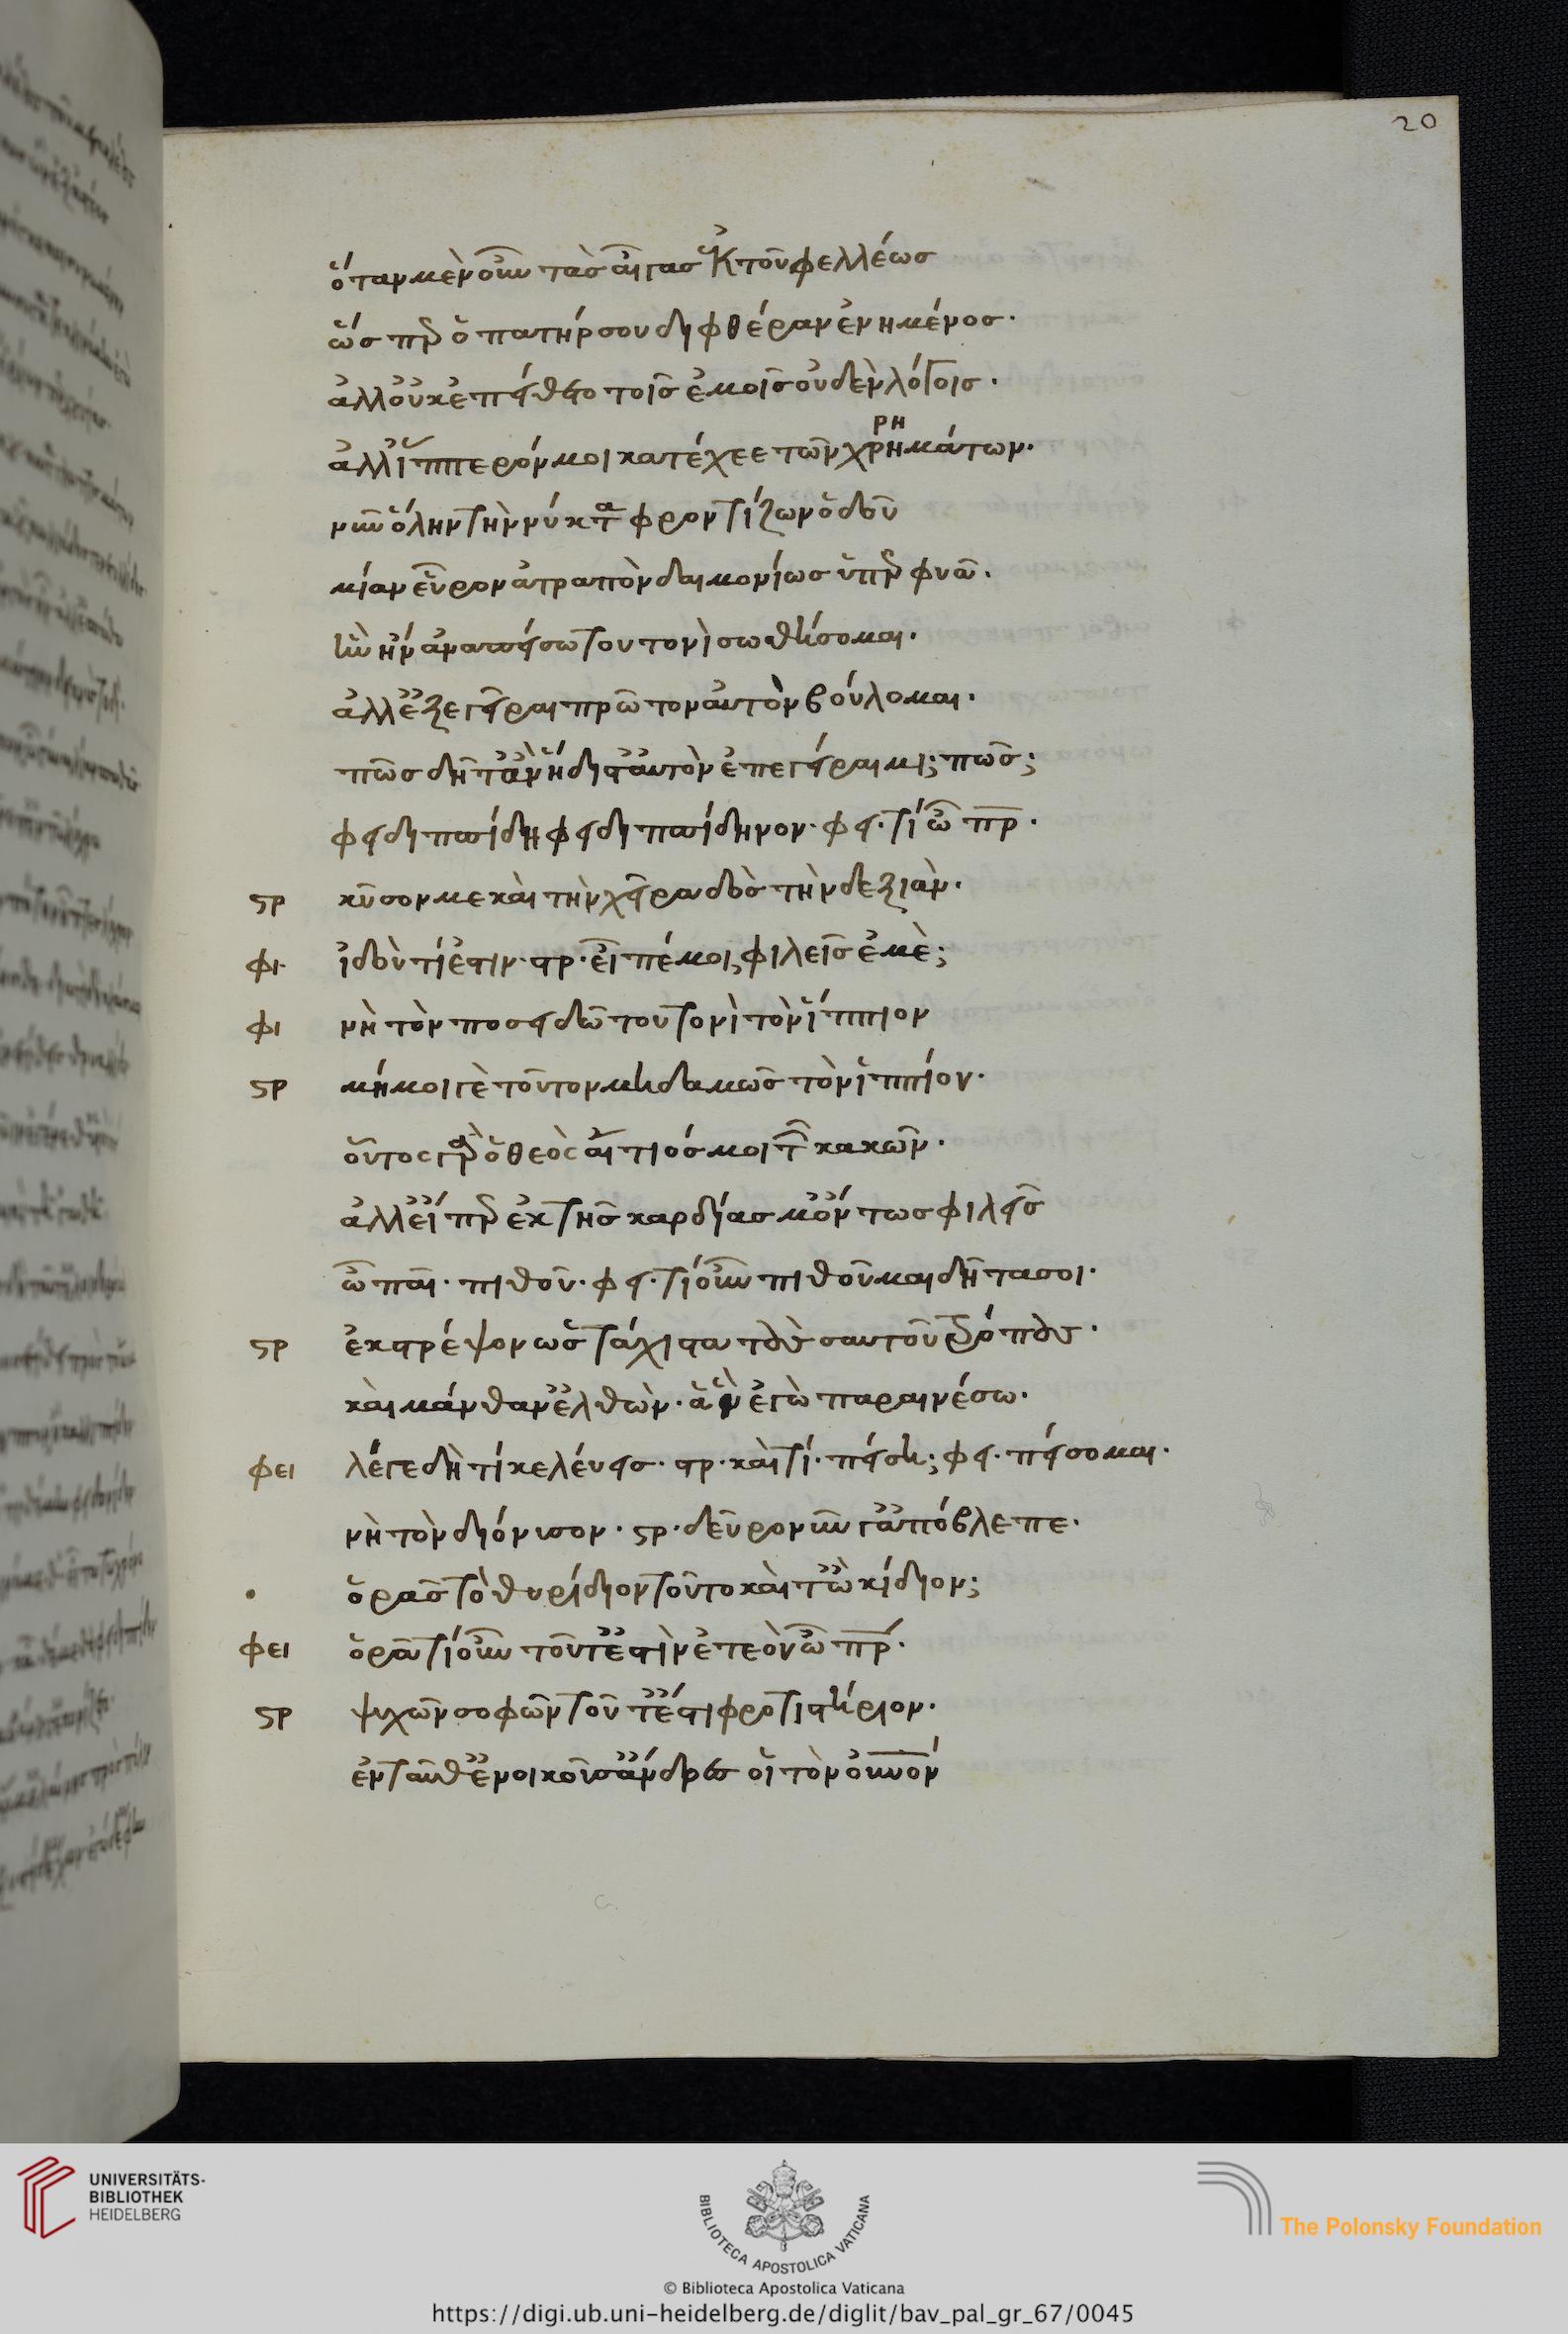 20
ὅταν μὲν οὖν τὰς αἶγας ἐκ τοῦ φελλέως
ὥσπερ ὁ πατήρ σου διφθέραν ἐνημένος·
ἀλλ' οὐκ ἐπείθετο τοῖς ἐμοῖς οὐδὲν λόγοις·
ἀλλ' ἵππερόν μοι κατέχεε τῶν χρημάτων·
ρη
νῦν ὅλην τὴν νύκτα φροντίζων ὁδοῦ
μίαν εὗρον ἀτραπὸν δαιμονίως ὑπερφυᾶ·
ἣν ἢν ἀναπείσω τουτονὶ σωθήσομαι·
ἀλλ' ἐξεγεῖραι πρῶτον αὐτὸν βούλομαι·
πῶς δῆτ' ἂν ἥδιστ' αὐτὸν ἐπεγείραιμι; πῶς;
φειδιππίδη φειδιππίδηνον· φει· τί ὦ περ·
ϛρ κῦσον με καὶ τὴν χεῖρα δὸς τὴν δεξιὰν·
φι· ἰδοὺ τί ἐστιν· στρ· εἶπέ μοι, φιλεῖς ἐμὲ;
φι νὴ τὸν ποσειδῶ τουτονὶ τὸν ἵππιον
ϛρ μή μοι γὲ τοῦτον μηδαμῶς τὸν ἱππίον·
οὗτος γὰρ ὁ θεὸς αἴτιός μοι τῶν κακῶν·
ἀλλ' εἴπερ ἐκ τῆς καρδίας μ' ὄντως φιλεῖς
ὦ παῖ· πιθοῦ· φει· τί οὖν πιθοῦμαι δῆτα σοι·
ϛρ ἐκστρέψον ὡς τάχιστα τοὺς σαυτοῦ τρόπους·
καὶ μάνθαν' ἐλθὼν· ἃ ἂν ἐγὼ παραινέσω·
φει λέγε δὴ τί κελέυεις· στρ· καὶ τί· πείση; φει· πείσομαι·
νὴ τὸν διόνισον· ϛρ· δεῦρο νῦν γ' ἀπόβλεπε·
ὁρᾶς τὸ θυρίδιον τοῦτο καὶ τ' ὠκίδιον;
φει ὁρῶ τί οὖν τοῦτ' ἐστὶν ἐτεὸν ὦ περ·
ϛρ ψυχῶν σοφῶν τοῦτ' ἔστι φροτιστήριον·
ἐνταῦθ' ἐνοικοῦσ' ἄνδρες οἳ τὸν οὐνὸν
UNIVERSITÄTS-
BIBLIOTHEK
HEIDELBERG
BIBLIOTECA APOSTOLICA VATICANA
The Polonsky Foundation
© Biblioteca Apostolica Vaticana
https://digi.ub.uni-heidelberg.de/diglit/bav_pal_gr_67/0045